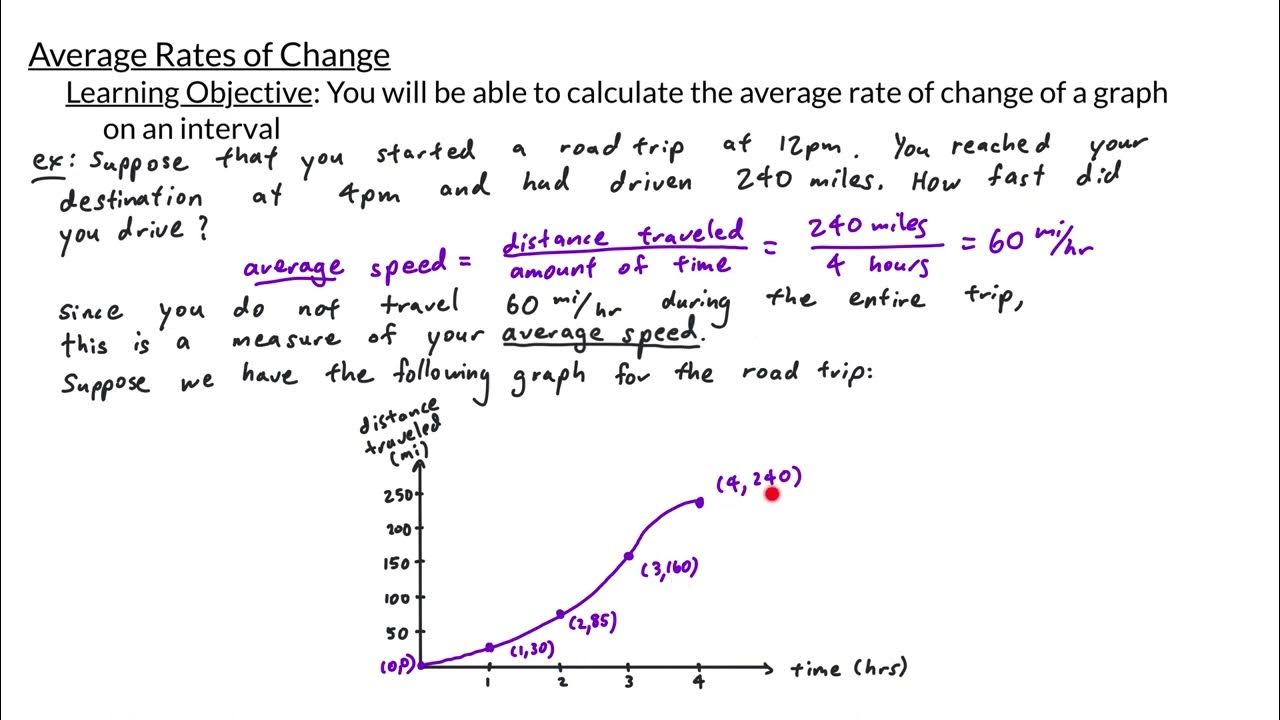 Average Rates of Change
Learning Objective: You will be able to calculate the average rate of change of a graph
on an interval
ex: Suppose that you started a road trip at 12pm. You reached your
destination at 4pm and had driven 240 miles. How fast did
you drive?
average speed = distance traveled / amount of time = 240 miles / 4 hours = 60 mi/hr
since you do not travel 60 mi/hr during the entire trip,
this is a measure of your average speed.
Suppose we have the following graph for the road trip:
distance
traveled
(mi)
250
200
150
100
50
(0,0)
(1,30)
(2,85)
(3,160)
(4,240)
1 2 3 4
time (hrs)